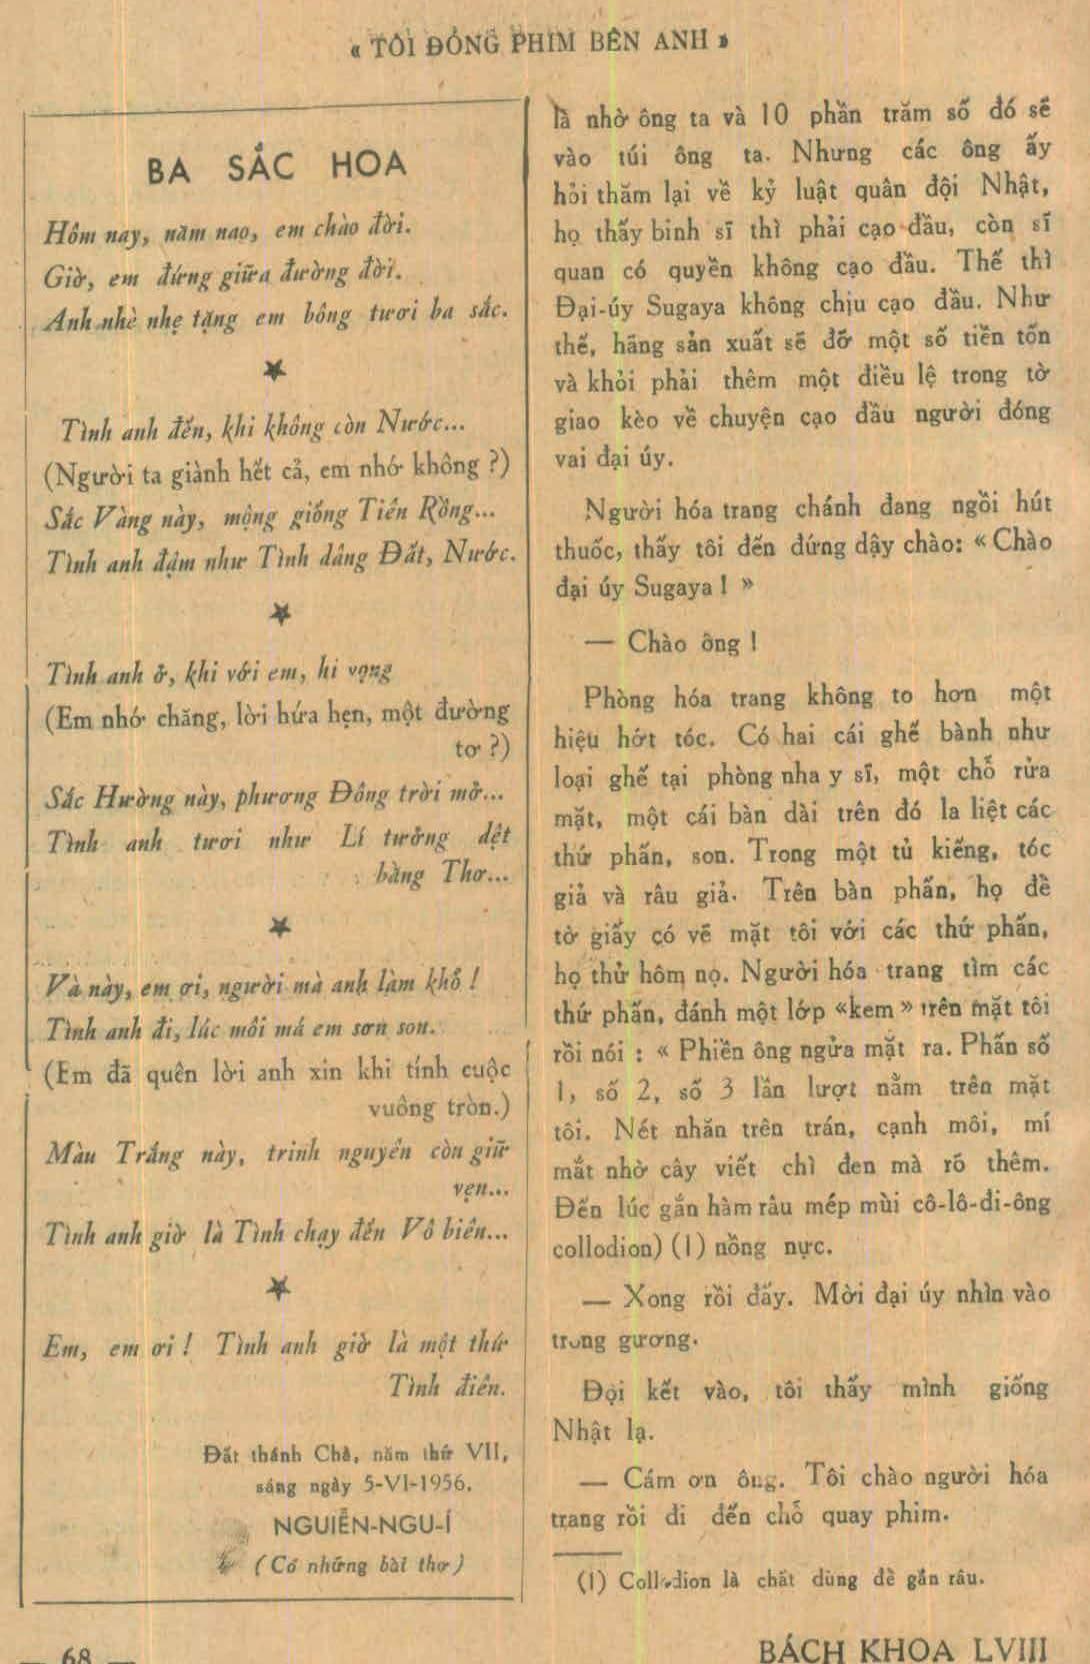 « TÔI ĐÓNG PHIM BÊN ANH »
BA SẮC HOA
Hôm nay, năm nao, em chào đời.
Giờ, em đứng giữa đường đời.
Anh nhè nhẹ tặng em bông tươi ba sắc.
★
Tình anh đến, khi không còn Nước...
(Người ta giành hết cả, em nhớ không ?)
Sắc Vàng này, mộng giống Tiên Rồng...
Tình anh đậm như Tình dâng Đất, Nước.
★
Tình anh ở, khi với em, hi vọng
(Em nhớ chăng, lời hứa hẹn, một đường
tơ ?)
Sắc Hường này, phương Đông trời mở...
Tình anh tươi như Lí tưởng dệt
bằng Thơ...
★
Và này, em ơi, người mà anh làm khổ !
Tình anh đi, lúc môi má em sơn son.
(Em đã quên lời anh xin khi tính cuộc
vuông tròn.)
Màu Trắng này, trinh nguyên còn giữ
vẹn...
Tình anh giờ là Tình chạy đến Vô biên...
★
Em, em ơi ! Tình anh giờ là một thứ
Tình điên.
Đất thánh Chà, năm thứ VII,
sáng ngày 5-VI-1956.
NGUIỄN-NGU-Í
(Có những bài thơ)
là nhờ ông ta và 10 phần trăm số đó sẽ
vào túi ông ta. Nhưng các ông ấy
hỏi thăm lại về kỷ luật quân đội Nhật,
họ thấy binh sĩ thì phải cạo đầu, còn sĩ
quan có quyền không cạo đầu. Thế thì
Đại-úy Sugaya không chịu cạo đầu. Như
thế, hãng sản xuất sẽ đỡ một số tiền tốn
và khỏi phải thêm một điều lệ trong tờ
giao kèo về chuyện cạo đầu người đóng
vai đại úy.
Người hóa trang chánh đang ngồi hút
thuốc, thấy tôi đến đứng dậy chào: « Chào
đại úy Sugaya ! »
— Chào ông !
Phòng hóa trang không to hơn một
hiệu hớt tóc. Có hai cái ghế bành như
loại ghế tại phòng nha y sĩ, một chỗ rửa
mặt, một cái bàn dài trên đó la liệt các
thứ phấn, son. Trong một tủ kiếng, tóc
giả và râu giả. Trên bàn phấn, họ để
tờ giấy có vẽ mặt tôi với các thứ phấn,
họ thử hôm nọ. Người hóa trang tìm các
thứ phấn, đánh một lớp «kem» trên mặt tôi
rồi nói : « Phiền ông ngửa mặt ra. Phấn số
1, số 2, số 3 lần lượt nằm trên mặt
tôi. Nét nhăn trên trán, cạnh môi, mí
mắt nhờ cây viết chì đen mà rõ thêm.
Đến lúc gắn hàm râu mép mùi cô-lô-đi-ông
collodion) (1) nồng nực.
— Xong rồi đấy. Mời đại úy nhìn vào
trong gương.
Đội kết vào, tôi thấy mình giống
Nhật lạ.
— Cám ơn ông. Tôi chào người hóa
trang rồi đi đến chỗ quay phim.
(1) Collodion là chất dùng để gắn râu.
— 68 —
BÁCH KHOA LVIII